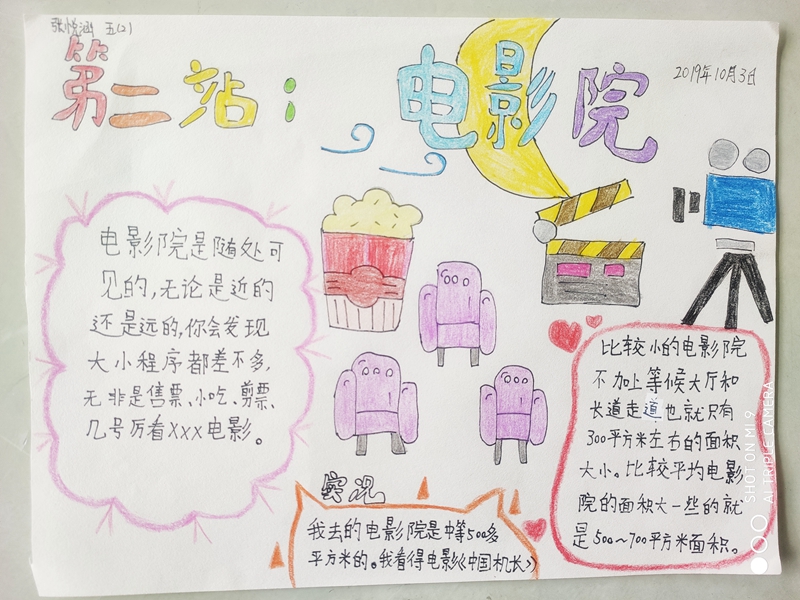 张悦涵 五(2)
第二站：
电影院
2019年10月3日
电影院是随处可
见的,无论是近的
还是远的,你会发现
大小程序都差不多,
无非是售票、小吃、剪票、
几号厅看XXX电影。
比较小的电影院
不加上等候大厅和
长道走道也就只有
300平方米左右的面积
大小。比较平均电影
院的面积大一些的就
是500~700平方米面积。
实况
我去的电影院是中等500多
平方米的。我看得电影《中国机长》
SHOT ON MI 9
AI TRIPLE CAMERA